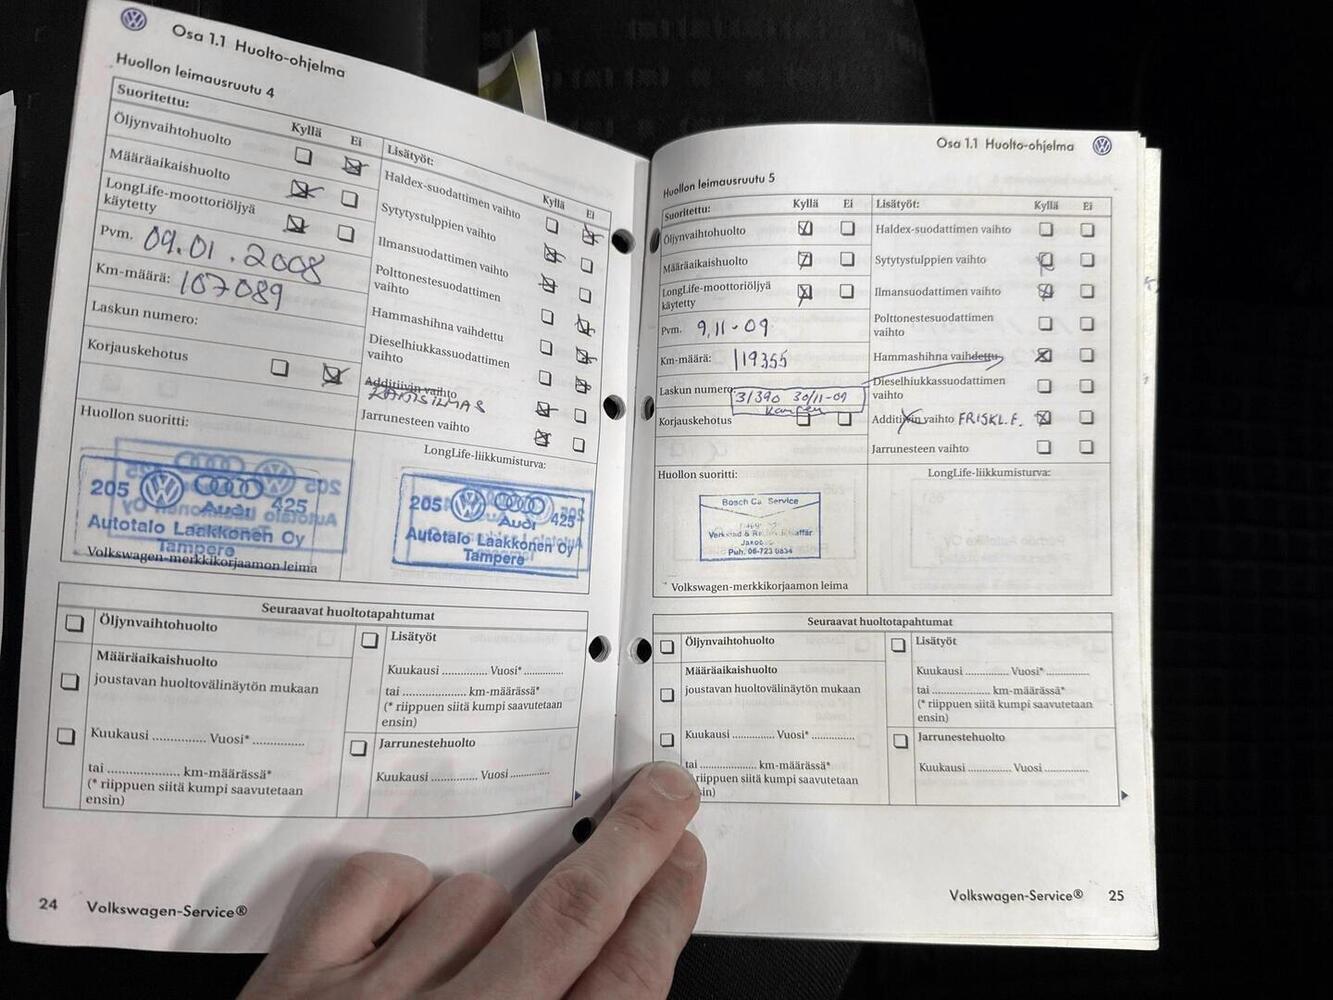 Osa 1.1 Huolto-ohjelma
Huollon leimausruutu 4
Suoritettu:
Kyllä Ei
Öljynvaihtohuolto
Määräaikaishuolto
LongLife-moottoriöljyä
käytetty
Pvm. 09.01.2008
Km-määrä: 107089
Laskun numero:
Korjauskehotus
Lisätyöt:
Kyllä Ei
Haldex-suodattimen vaihto
Sytytystulppien vaihto
Ilmansuodattimen vaihto
Polttonestesuodattimen
vaihto
Hammashihna vaihdettu
Dieselhiukkassuodattimen
vaihto
Additiivin vaihto
Jarrunesteen vaihto
Huollon suoritti:
205 Audi 425
Autotalo Laakkonen Oy
Tampere
Volkswagen-merkkikorjaamon leima
LongLife-liikkumisturva:
205 Audi 425
Autotalo Laakkonen Oy
Tampere
Seuraavat huoltotapahtumat
Öljynvaihtohuolto
Määräaikaishuolto
joustavan huoltovälinäytön mukaan
Kuukausi ............... Vuosi* ...............
tai ..................... km-määrässä*
(* riippuen siitä kumpi saavutetaan
ensin)
Lisätyöt
Kuukausi ............. Vuosi* .............
tai ................... km-määrässä*
(* riippuen siitä kumpi saavutetaan
ensin)
Jarrunestehuolto
Kuukausi ............. Vuosi .............
24 Volkswagen-Service®
Osa 1.1 Huolto-ohjelma
Huollon leimausruutu 5
Suoritettu: Kyllä Ei
Öljynvaihtohuolto
Määräaikaishuolto
LongLife-moottoriöljyä
käytetty
Pvm. 9.11-09
Km-määrä: 119355
Laskun numero:
31390 30/11-09
Korjauskehotus
Lisätyöt: Kyllä Ei
Haldex-suodattimen vaihto
Sytytystulppien vaihto
Ilmansuodattimen vaihto
Polttonestesuodattimen
vaihto
Hammashihna vaihdettu
Dieselhiukkassuodattimen
vaihto
Additiivin vaihto FRISKL.F.
Jarrunesteen vaihto
Huollon suoritti:
Bosch Car Service
Puh. 06-723 0834
* Volkswagen-merkkikorjaamon leima
LongLife-liikkumisturva:
Seuraavat huoltotapahtumat
Öljynvaihtohuolto
Määräaikaishuolto
joustavan huoltovälinäytön mukaan
Kuukausi ............. Vuosi* .............
tai ................... km-määrässä*
riippuen siitä kumpi saavutetaan
Lisätyöt
Kuukausi ............. Vuosi* .............
tai ................... km-määrässä*
(* riippuen siitä kumpi saavutetaan
ensin)
Jarrunestehuolto
Kuukausi ............. Vuosi .............
Volkswagen-Service® 25